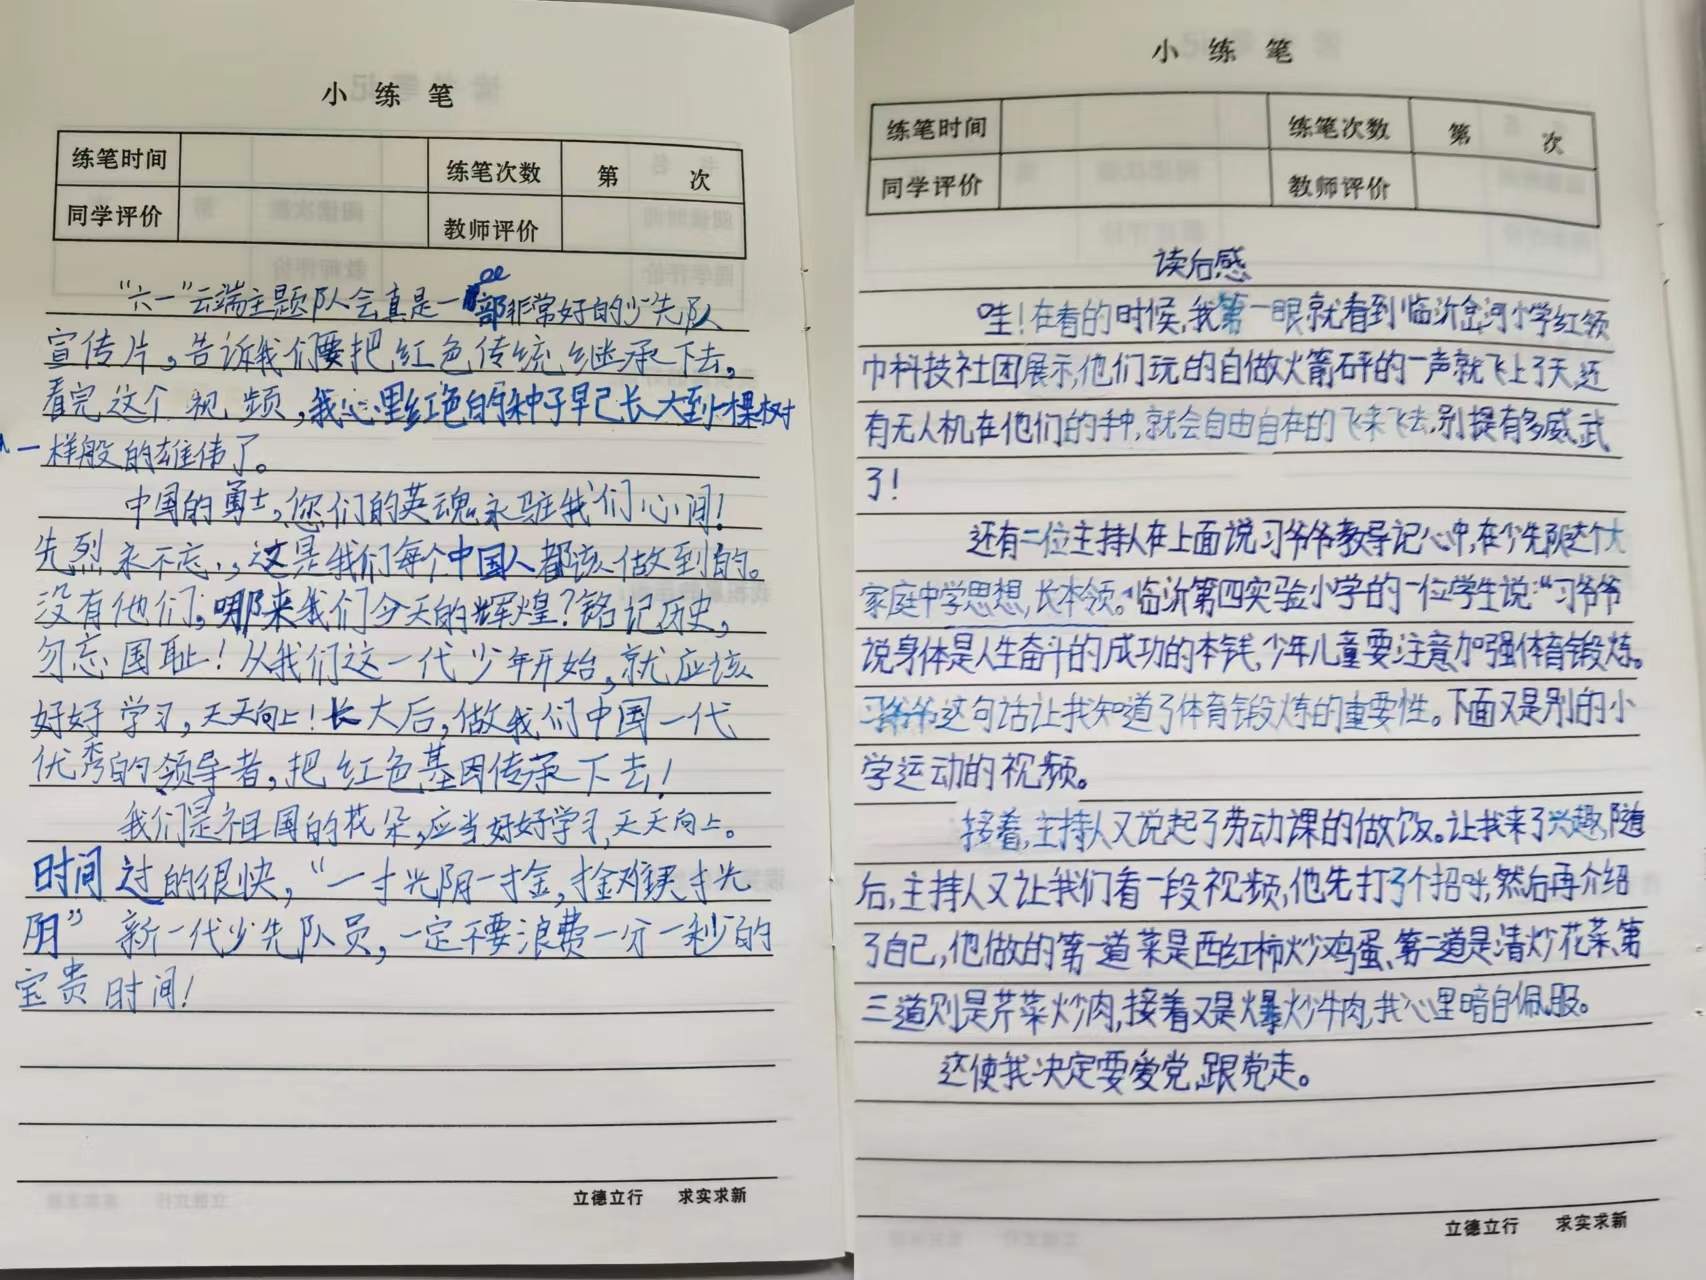 小 练 笔
练笔时间 练笔次数 第 次
同学评价 教师评价
“六一”云端主题队会真是一部非常好的少先队
宣传片，告诉我们要把红色传统继承下去，
看完这个视频，我心里红色的种子早已长大到小棵树
一样般的雄伟了。
中国的勇士，您们的英魂永驻我们心间！
先烈永不忘，这是我们每个中国人都该做到的。
没有他们，哪来我们今天的辉煌？铭记历史，
勿忘国耻！从我们这一代少年开始，就应该
好好学习，天天向上！长大后，做我们中国一代
优秀的领导者，把红色基因传承下去！
我们是祖国的花朵，应当好好学习，天天向上。
时间过的很快，“一寸光阴一寸金，寸金难买寸光
阴”新一代少先队员，一定不要浪费一分一秒的
宝贵时间！
立德立行 求实求新
小 练 笔
练笔时间 练笔次数 第 次
同学评价 教师评价
读后感
哇！在看的时候，我第一眼就看到临沂岔河小学红领
巾科技社团展示，他们玩的自做火箭砰的一声就飞上了天，还
有无人机在他们的手种，就会自由自在的飞来飞去，别提有多威武
了！
还有二位主持人在上面说习爷爷教导记心中，在少先队这个大
家庭中学思想，长本领。临沂第四实验小学的一位学生说：“习爷爷
说身体是人生奋斗的成功的本钱，少年儿童要注意加强体育锻炼。
习爷爷这句话让我知道了体育锻炼的重要性。下面又是别的小
学运动的视频。
接着，主持人又说起了劳动课的做饭。让我来了兴趣，随
后，主持人又让我们看一段视频，他先打了个招呼，然后再介绍
了自己，他做的第一道菜是西红柿炒鸡蛋、第二道是清炒花菜、第
三道则是芹菜炒肉，接着又是爆炒牛肉，我心里暗自佩服。
这使我决定要爱党，跟党走。
立德立行 求实求新